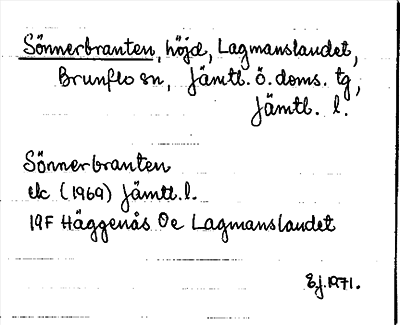 Sönnerbranten, höjd, Lagmanslandet,
Brunflo sn, Jämtl. ö. doms. tg,
Jämtl. l.
Sönnerbranten
ek (1969) Jämtl. l.
19F Häggenås Oe Lagmanslandet
Ej. 1971.